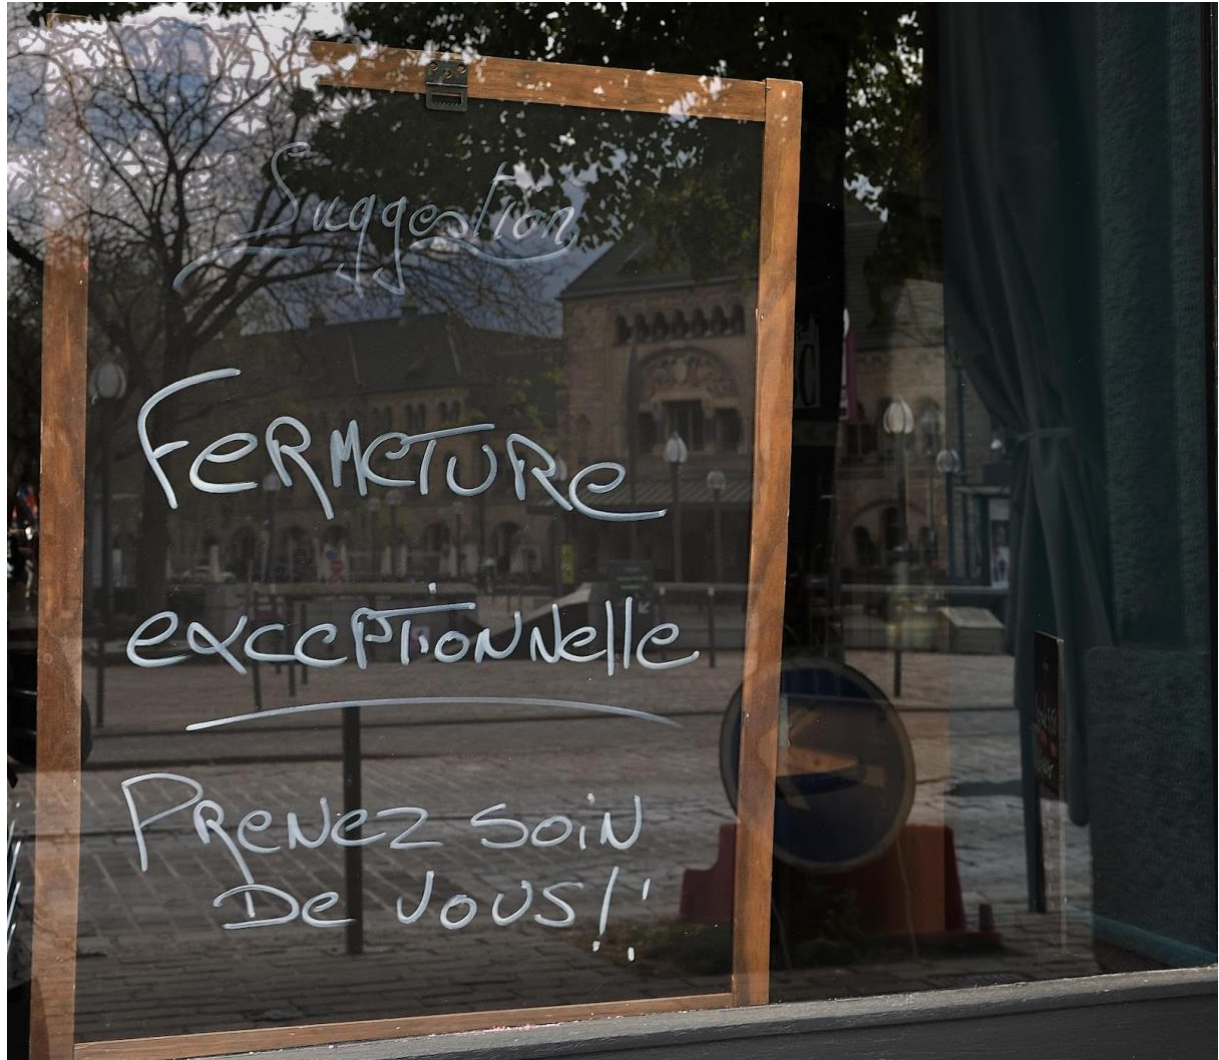 Suggestion
FeRMeTURe
exceptionNelle
PReNez soin
De vous!!